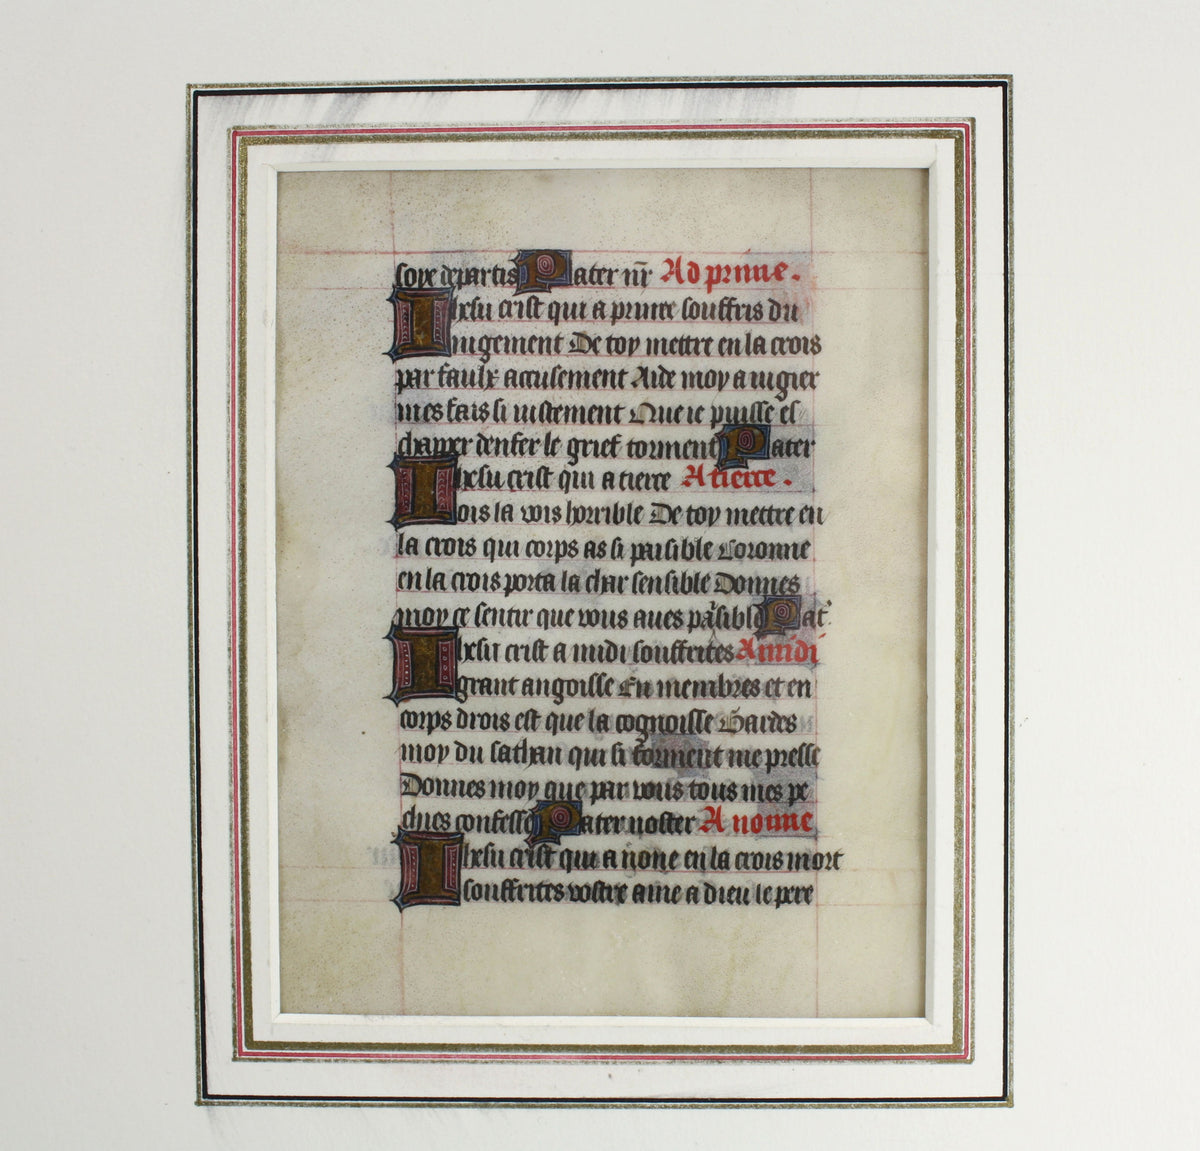 soye departis Pater nr̄ Ad prime.
Ihesu crist qui a prime souffris du
iugement De toy mettre en la crois
par faulx accusement Aide moy a iugier
mes fais si iustement Que ie puisse es
chapper denfer le grief torment Pater
Ihesu crist qui a tierce A tierce.
ois la vois horrible De toy mettre en
la crois qui corps as si paisible Coronne
en la crois porta la char sensible Donnes
moy ce sentir que vous aues
Ihesu crist a midi souffrites A midi
grant angoisse En membres et en
corps drois est que la cognoisse Gardes
moy du sathan qui si torment me presse
Donnes moy que par vous tous mes pe
chies confesse Pater noster A nonne
Ihesu crist qui a none en la crois mort
souffrites vostre ame a dieu le pere